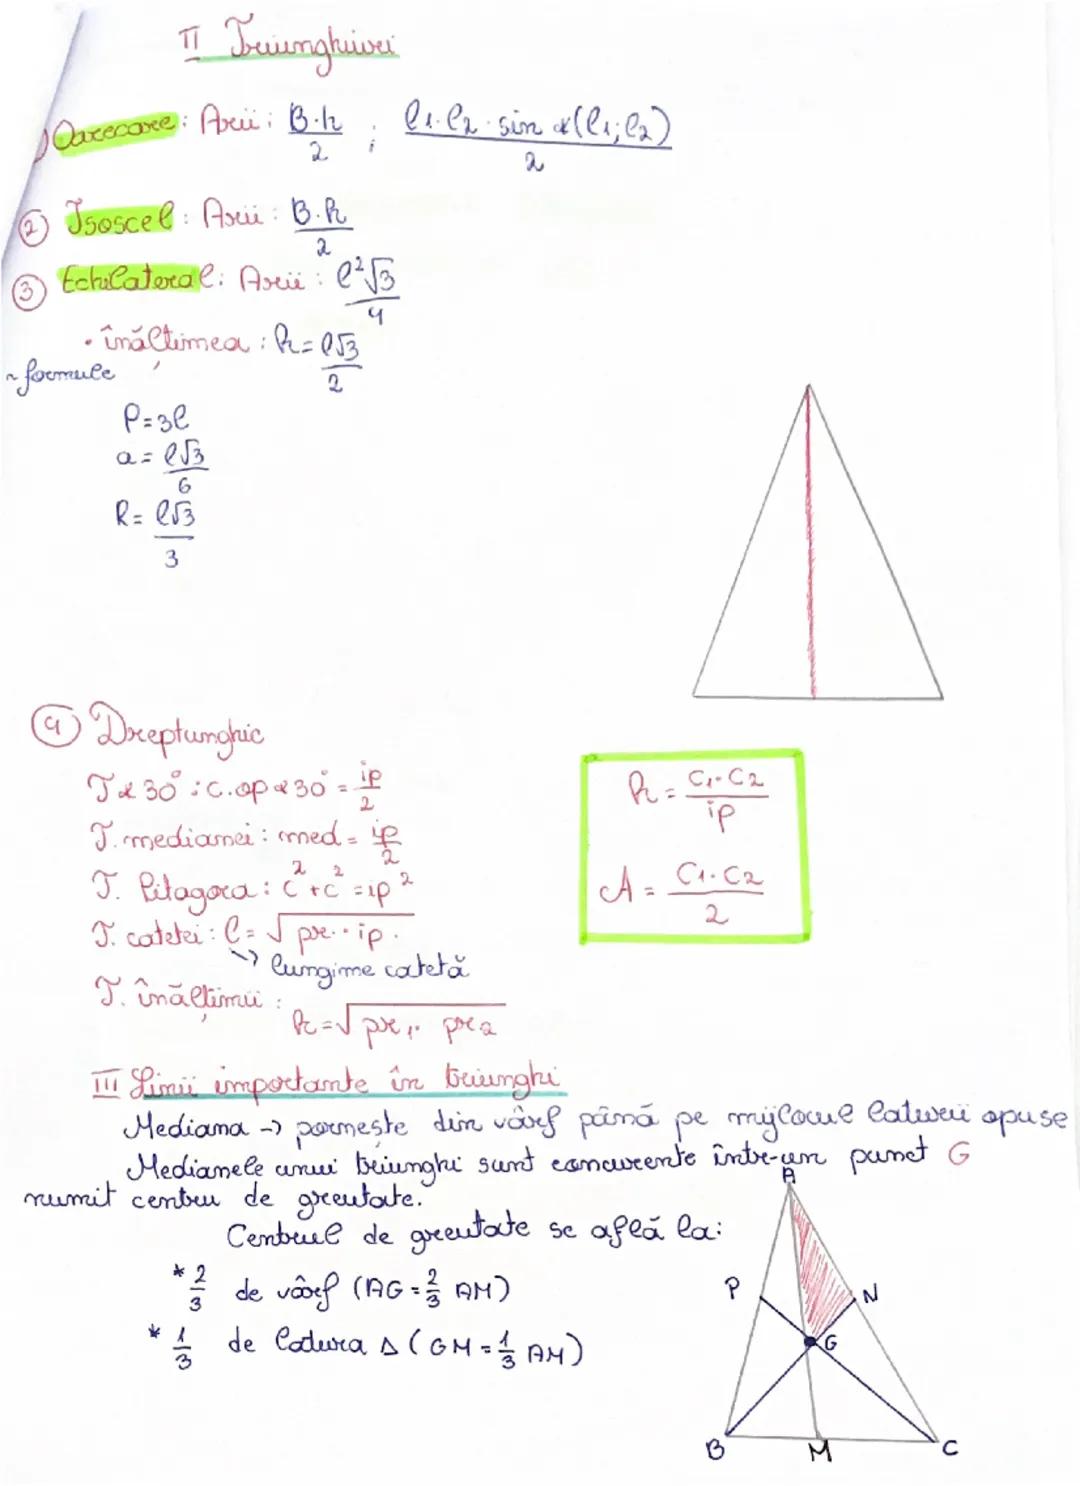 II Triunghiuri
1) Oarecare: Arii: B·h/2 ; l₁·l₂·sin∢(l₁;l₂)/2
② Isoscel: Arii: B·h/2
③ Echilateral: Arii: l²√3/4
• înălțimea: h=l√3/2
~ formule
P=3l
a=l√3/6
R=l√3/3
④ Dreptunghic
T∢30°: c.op∢30°=ip/2
T. medianei: med=ip/2
T. Pitagora: c²+c²=ip²
T. catetei: l=√pr.·ip.
↳ lungime catetă
T. înălțimii:
h=√pr₁·pr₂
h=c₁·c₂/ip
A=c₁·c₂/2
III Linii importante în triunghi
Mediana -> pornește din vârf până pe mijlocul laturii opuse
Medianele unui triunghi sunt concurente într-un punct G
numit centru de greutate.
Centrul de greutate se află la:
* 2/3 de vârf (AG=2/3 AM)
* 1/3 de latura Δ (GM=1/3 AM)
A
P
N
G
B
M
C